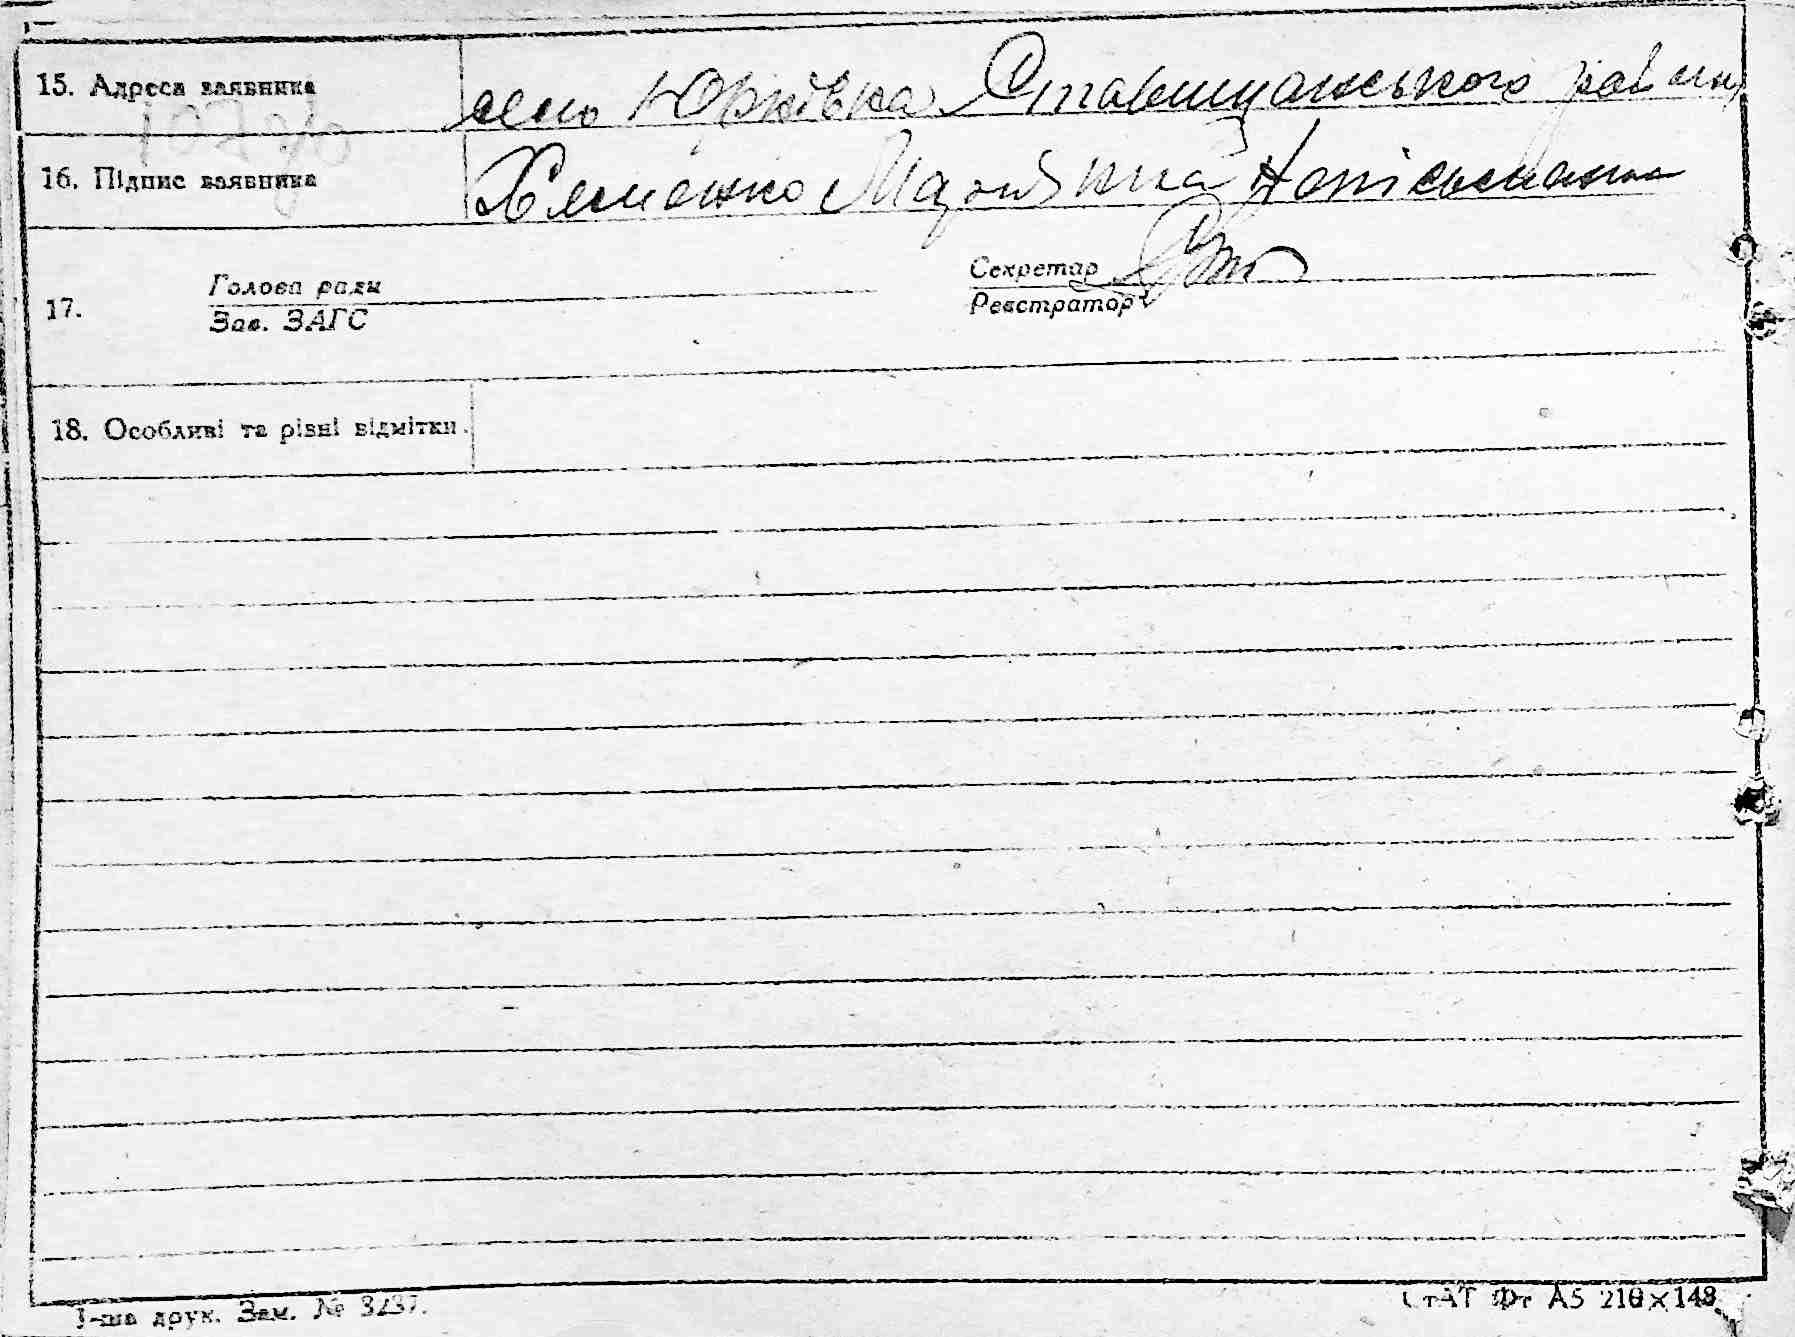 15. Адреса заявника село Юрківка Ставищанського району
16. Підпис заявника Хоменко неписьменна
17. Голова ради Секретар
Зав. ЗАГС Реєстратор
18. Особливі та різні відмітки.
1-ша друк. Зам. № 3237.
СтАТ Фт А5 210×148